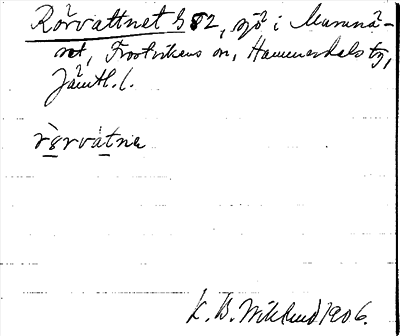 Rörvattnet b 52, sjö i Murunä-
set, Frostvikens sn, Hammerdals tg,
Jämtl. l.
rö̀rvátne
K. B. Wiklund 1906.